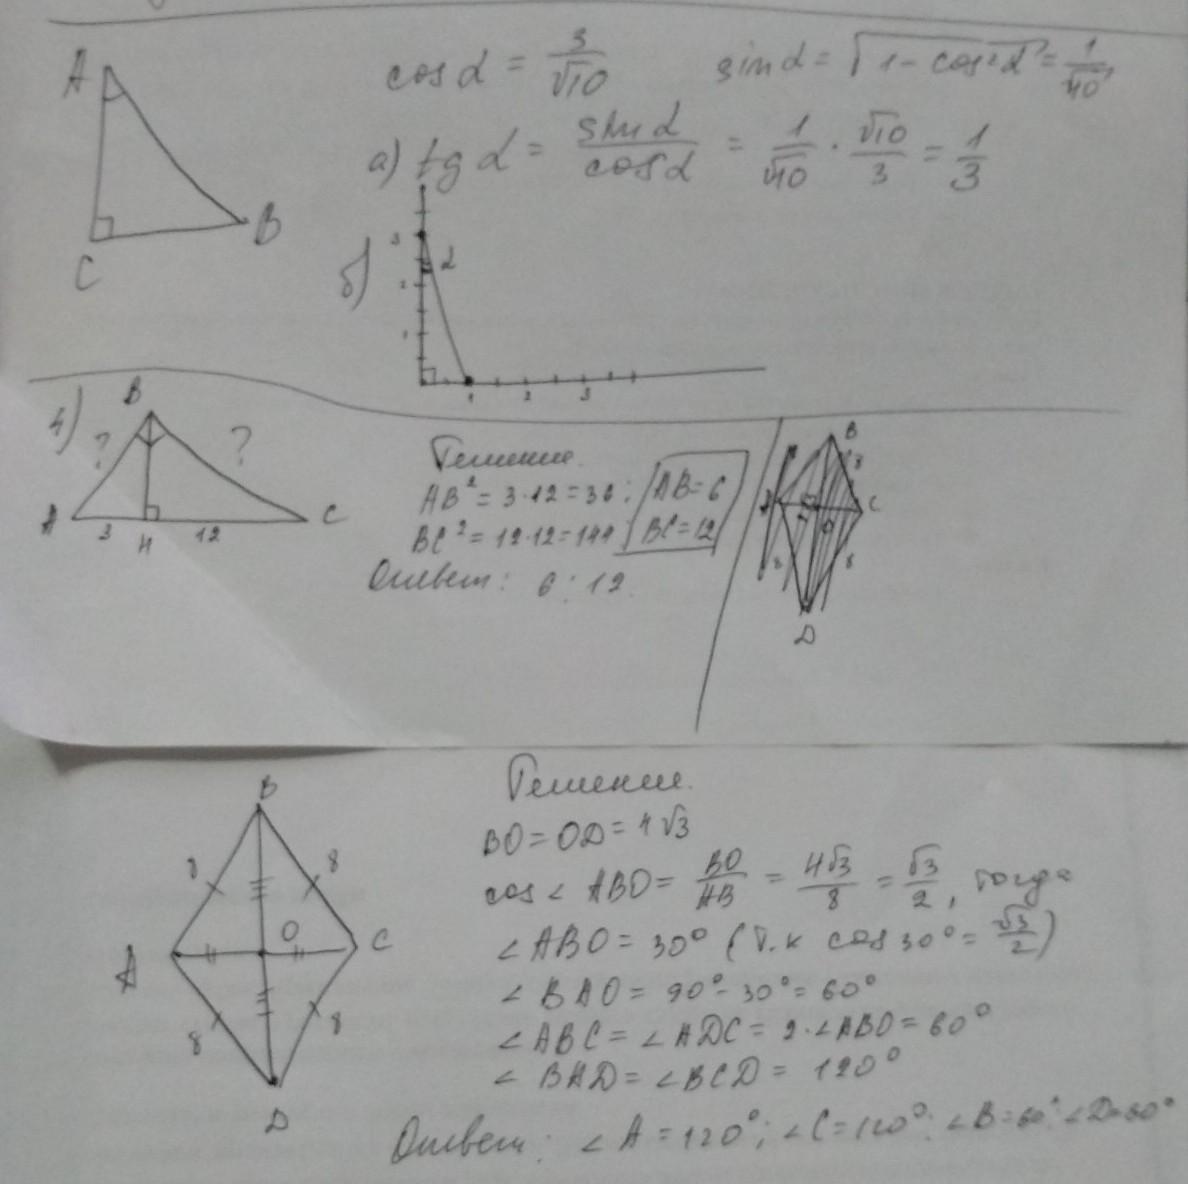 A
cos α = 3/√10 sin α = √(1 - cos²α) = 1/√10,
а) tg α = sin α / cos α = 1/√10 · √10/3 = 1/3
B
C
б)
3
α
2
1
1 2 3
4)
B
? ?
A 3 H 12 C
Решение.
AB² = 3·12=36; AB=6
BC² = 12·12=144 BC=12
Ответ: 6; 12.
B
8
C
O
8 8
D
B
8 8
O
A C
8 8
D
Решение.
BO=OD=4√3
cos∠ABO = BO/AB = 4√3/8 = √3/2, тогда
∠ABO = 30° (т.к cos 30° = √3/2)
∠BAO = 90°-30°=60°
∠ABC = ∠ADC = 2·∠ABO = 60°
∠BAD = ∠BCD = 120°
Ответ: ∠A = 120°; ∠C=120°; ∠B=60°; ∠D=60°